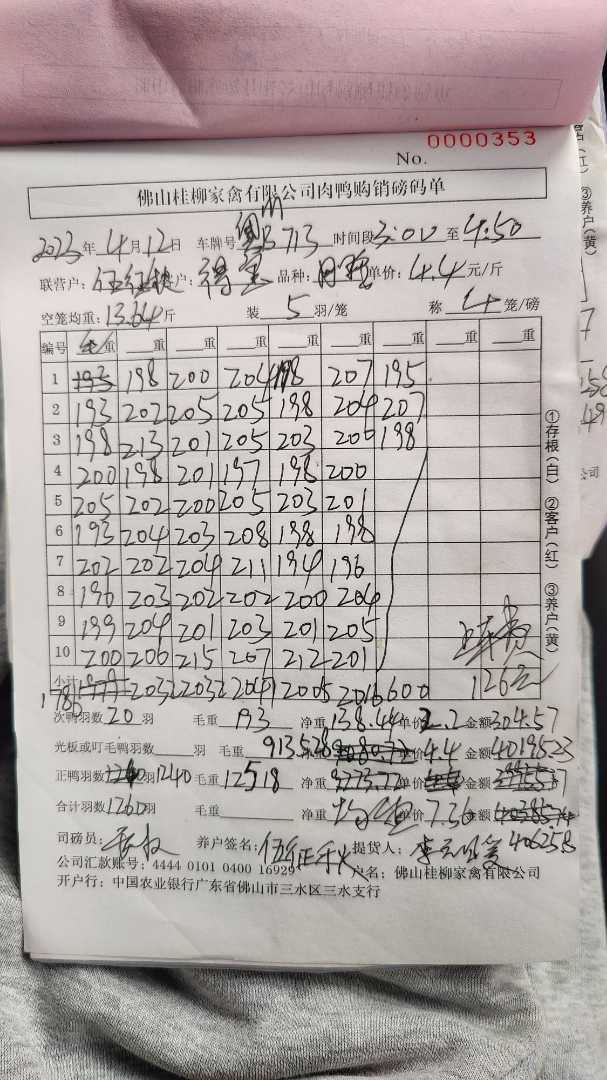 0000353
No.
佛山桂柳家禽有限公司肉鸭购销磅码单
2023年4月12日 车牌号 713 时间段3:00至4:50
联营户: 户: 品种: 单价:4.4元/斤
空笼均重:13.64斤 装5羽/笼 称4笼/磅
编号 重 重 重 重 重 重 重 重 重
1 193 198 200 204 198 207 195
2 193 202 205 205 198 204 207
3 198 213 201 205 203 200 198
4 200 198 201 197 198 200
5 205 202 200 205 203 201
6 193 204 203 208 198 198
7 202 202 204 211 194 196
8 196 203 202 202 200 204
9 199 204 201 203 201 205
10 200 206 215 207 212 201
小计 1786 2032 2032 2047 2005 2016 600
次鸭羽数20羽 毛重193 净重138.44 单价2.2 金额304.57
光板或叮毛鸭羽数 羽 毛重 9135.28 单价4.4 金额40195.23
正鸭羽数1240 毛重12518 净重 单价 金额
合计羽数1260羽 毛重 净重 均重 7.36 金额
406258
司磅员: 养户签名: 提货人:
公司汇款账号:4444 0101 0400 16929 户名:佛山桂柳家禽有限公司
开户行:中国农业银行广东省佛山市三水区三水支行
①存根(白) ②客户(红) ③养户(黄)
③养户(黄)